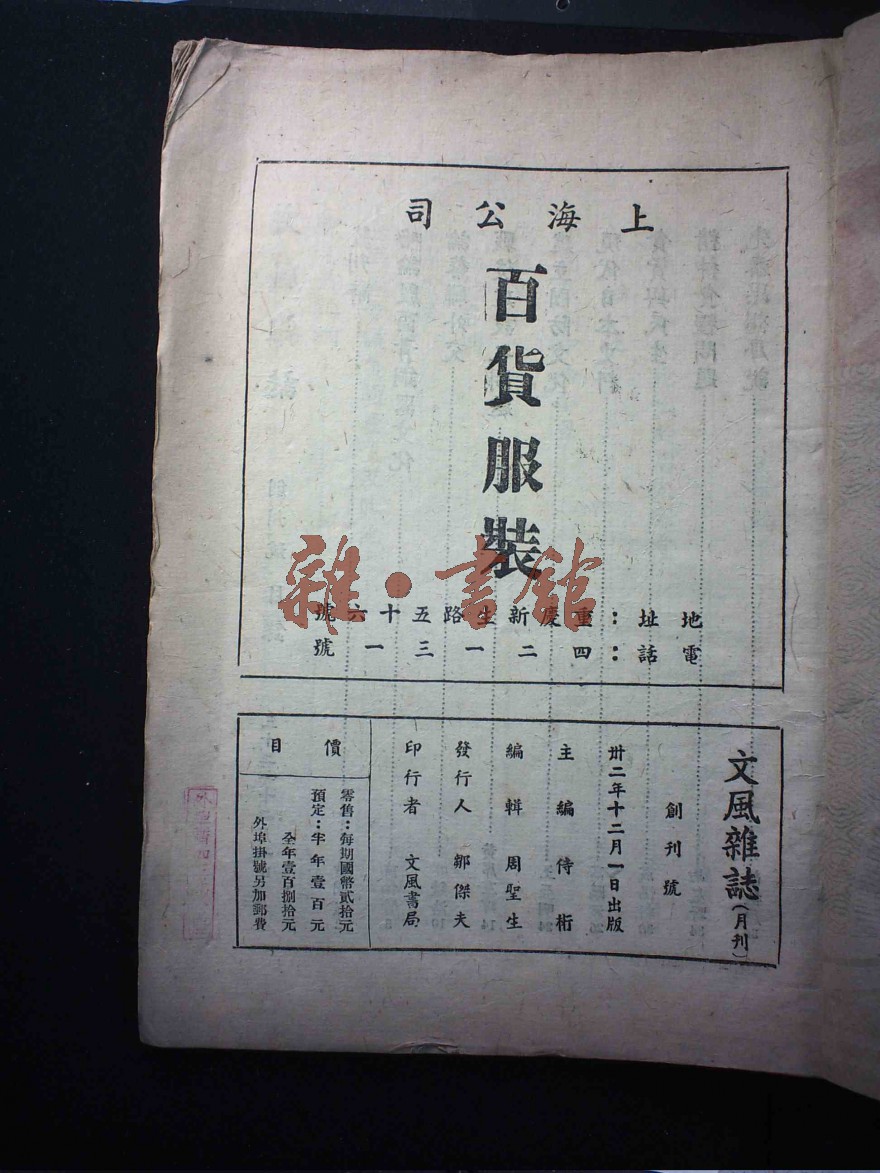 上海公司
百貨服裝
地址：重慶新生路五十六號
電話：四二一三一號
雜·書館
文風雜誌（月刊）
創刊號
卅二年十二月一日出版
主編 侍桁
編輯 周聖生
發行人 鄒傑夫
印行者 文風書局
價目
零售：每期國幣貳拾元
預定：半年壹百元
全年壹百捌拾元
外埠掛號另加郵費